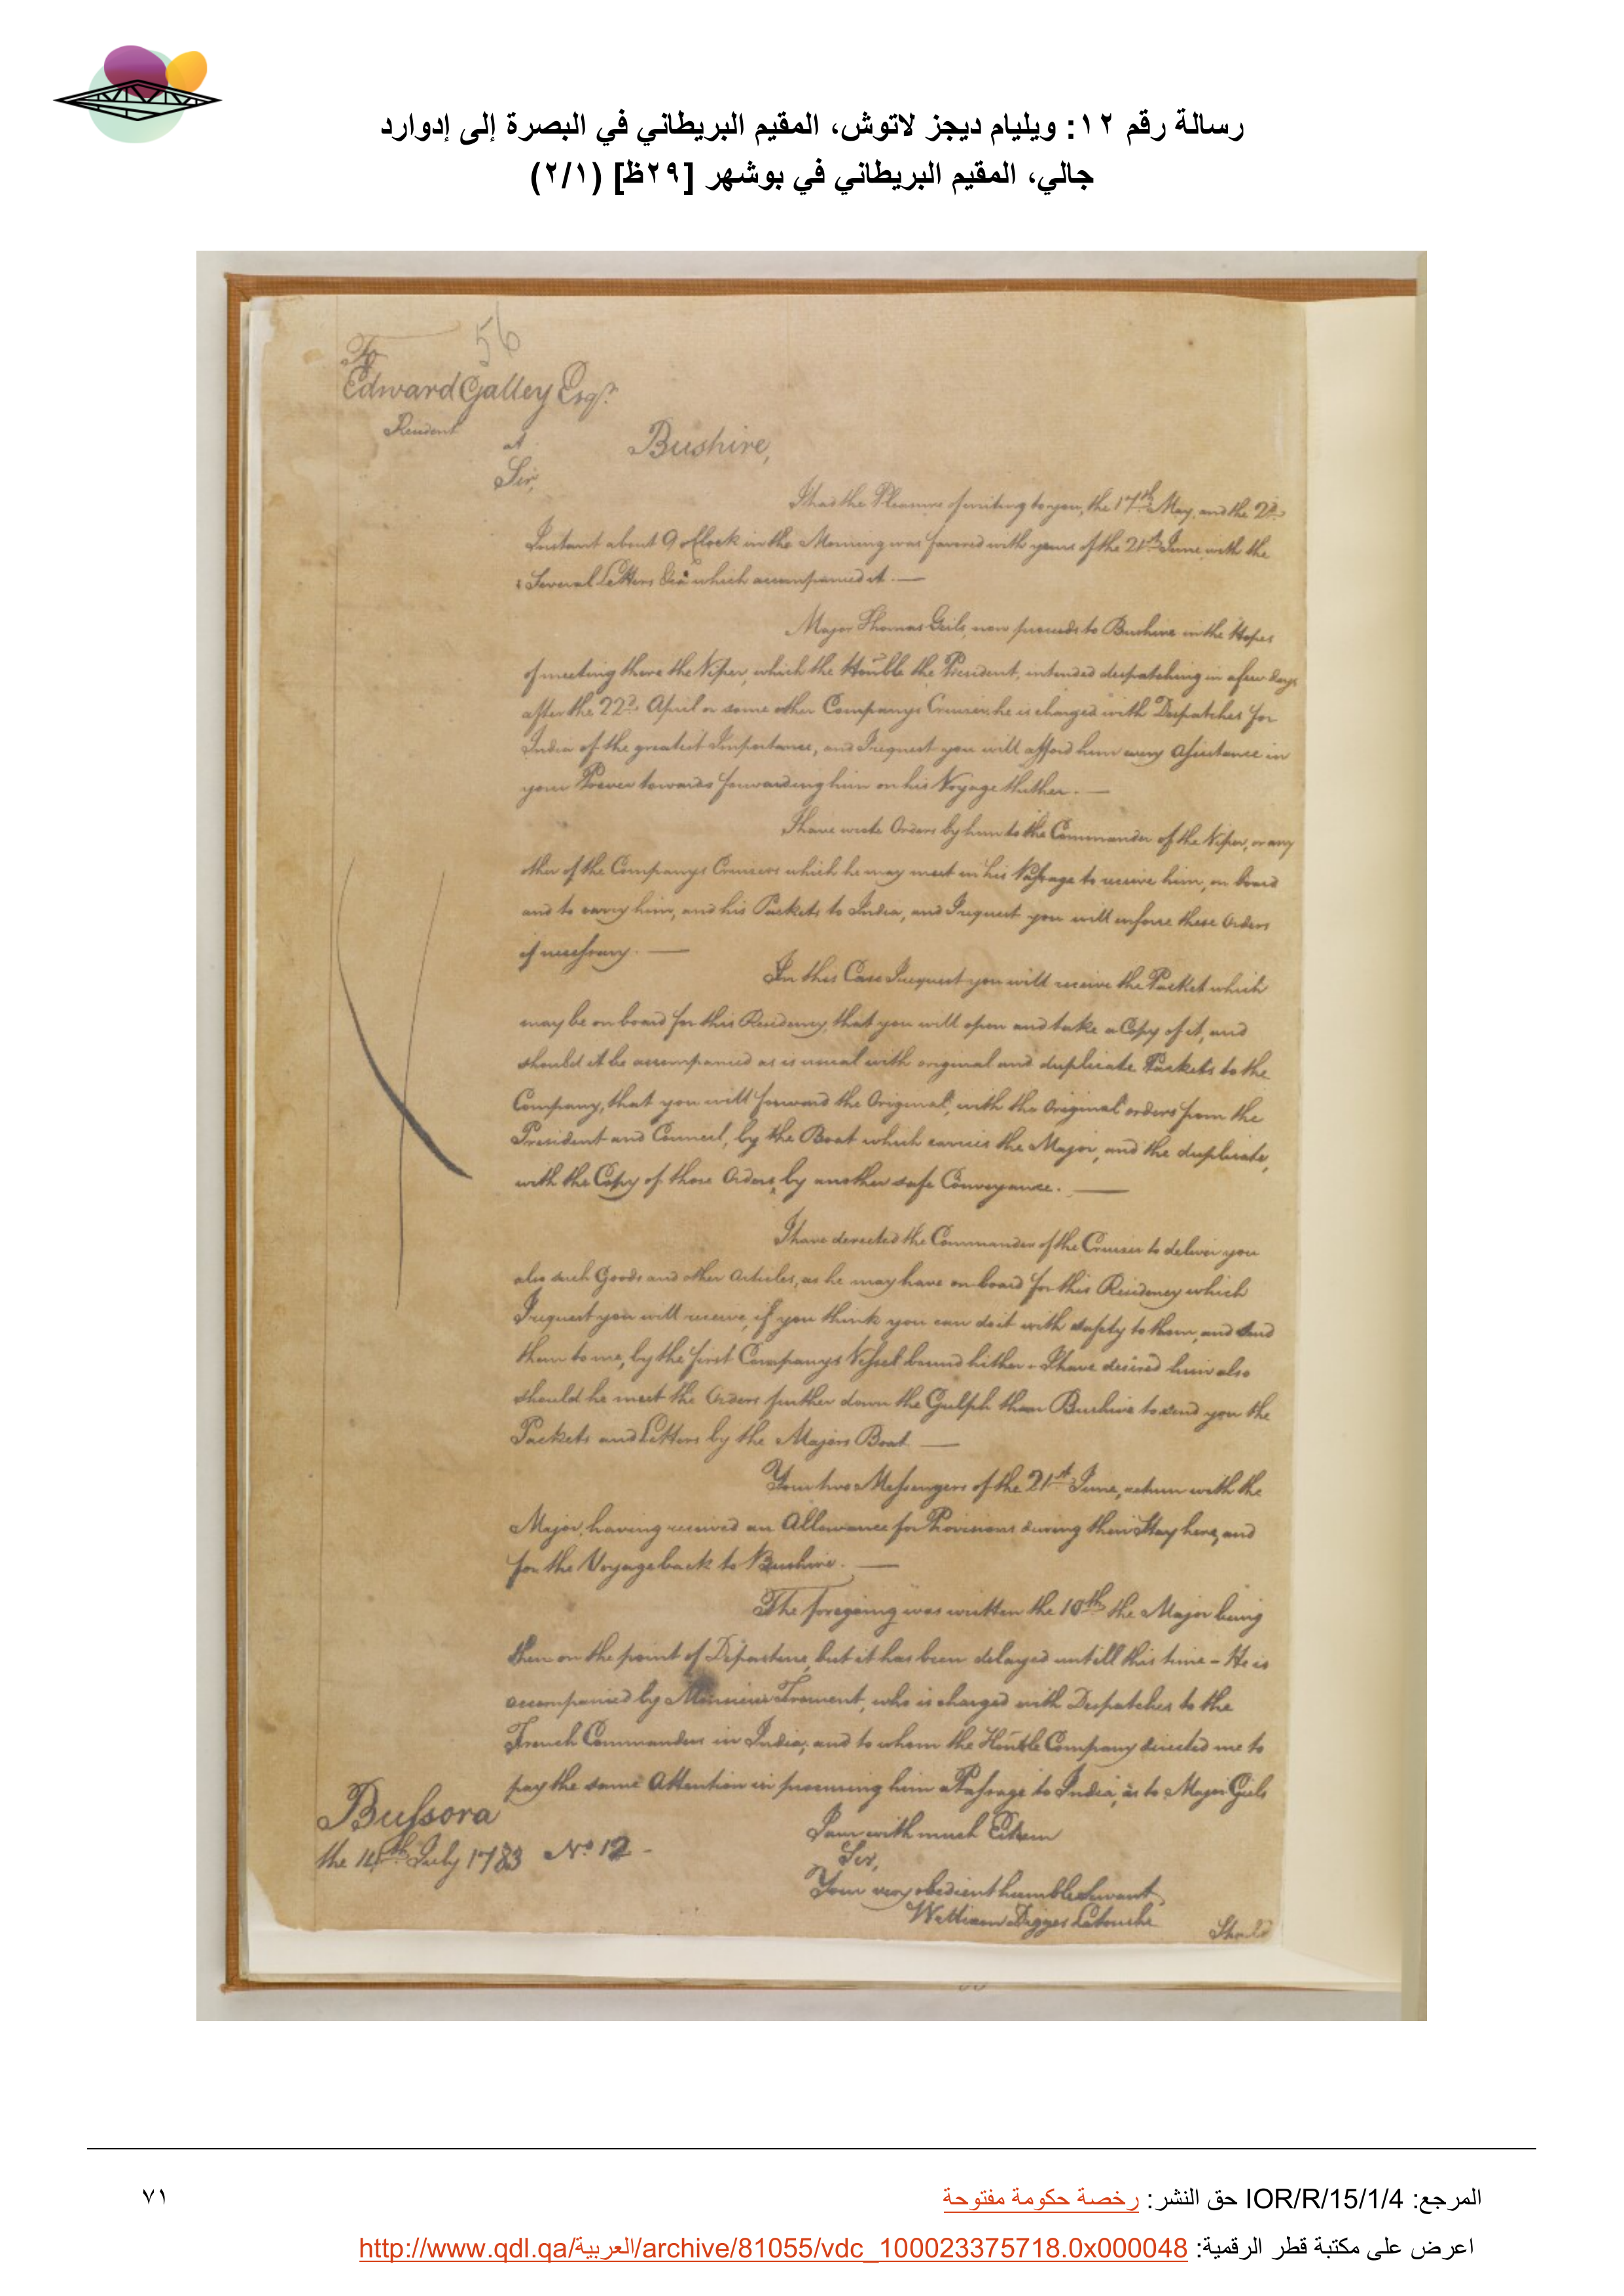 رسالة رقم ١٢: ويليام ديجز لاتوش، المقيم البريطاني في البصرة إلى إدوارد
جالي، المقيم البريطاني في بوشهر [٢٩ظ] (٢/١)
56
To
Edward Galley Esqr.
Resident
at
Bushire,
Sir,
I had the Pleasure of writing to you, the 17th May, and the 2d.
Instant about 9 oClock in the Morning was favored with yours of the 21st June with the
Several Letters &ca which accompanied it. —
Major Thomas Geils, now proceeds to Bushire in the Hopes
of meeting there the Viper, which the Honble the President, intended despatching in a few days
after the 22d. April or some other Companys Cruizer, he is charged with Despatches for
India of the greatest Importance, and I request you will afford him every Assistance in
your Power towards forwarding him on his Voyage thither. —
I have wrote Orders by him to the Commander of the Viper, or any
other of the Companys Cruizers which he may meet in his Passage to receive him, on board
and to carry him, and his Packets to India, and I request you will enforce these Orders
if necessary. —
In this Case I request you will receive the Packet which
may be on board for this Residency, that you will open and take a Copy of it, and
should it be accompanied as is usual with original and duplicate Packets to the
Company, that you will forward the Original, with the Original orders from the
President and Council, by the Boat which carries the Major, and the duplicate,
with the Copy of those Orders, by another safe Conveyance. —
I have directed the Commander of the Cruizer to deliver you
also such Goods and other Articles, as he may have on board for this Residency which
I request you will receive, if you think you can do it with safety to them, and send
them to me, by the first Companys Vessel bound hither - I have desired him also
should he meet the Orders further down the Gulph than Bushire to send you the
Packets and Letters by the Majors Boat —
Your two Messengers of the 21st June, return with the
Major, having received an Allowance for Provisions during their Stay here, and
for the Voyage back to Bushire. —
The foregoing was written the 10th the Major being
then on the point of Departure, but it has been delayed untill this time - He is
accompanied by Monsieur Froment, who is charged with Despatches to the
French Commanders in India, and to whom the Honble Company directed me to
pay the same Attention in procuring him a Passage to India, as to Major Geils
I am with much Esteem
Sir,
Your very obedient humble Servant
William Digges Latouche
Bussora
the 14th July 1783 No 12 -
Should
المرجع: IOR/R/15/1/4 حق النشر: رخصة حكومة مفتوحة
٧١
اعرض على مكتبة قطر الرقمية: http://www.qdl.qa/العربية/archive/81055/vdc_100023375718.0x000048